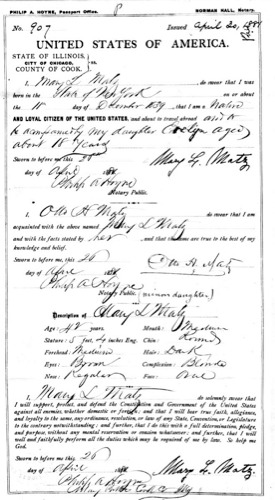 PHILIP A. HOYNE, Passport Office. NORMAN HALL, MORTGAGES.
No. 907 Issued April 30, 1884
UNITED STATES OF AMERICA.
STATE OF ILLINOIS,
CITY OF CHICAGO, ss.
COUNTY OF COOK.
I, Mary L. Matz, do swear that I was
born in the State of New York on or about
the 18 day of December 1839, that I am a Native
AND LOYAL CITIZEN OF THE UNITED STATES, and about to travel abroad and to
be accompanied by my daughter Evelyn aged
about 18 years
Sworn to before me this 28
day of April 188
Mary L. Matz
Philip A Hoyne
Notary Public.
I, Otto H Matz do swear that I am
acquainted with the above named Mary L Matz
and with the facts stated by her and that the same are true to the best of my
knowledge and belief.
Sworn to before me this 28
day of April 188
Otto H. Matz
Philip A Hoyne
Notary Public. (minor daughter)
Description of Mary L Matz
Age: 42 years Mouth: Medium
Stature: 5 feet, 4 inches Eng. Chin: Round
Forehead: Medium Hair: Dark
Eyes: Brown Complexion: Blonde
Nose: Regular Face: Oval
I, Mary L Matz do solemnly swear that I
will support, protect and defend the Constitution and Government of the United States
against all enemies, whether domestic or foreign; and that I will bear true faith, allegiance,
and loyalty to the same, any ordinance, resolution or law of any State, Convention, or Legislature
to the contrary notwithstanding; and further, that I do this with a full determination, pledge,
and purpose, without any mental reservation or evasion whatsoever; and further, that I will
well and faithfully perform all the duties which may be required of me by law. So help me
God.
Sworn to before me this 28
day of April 188
Mary L. Matz
Philip A Hoyne
Notary Public Cook Co Ills